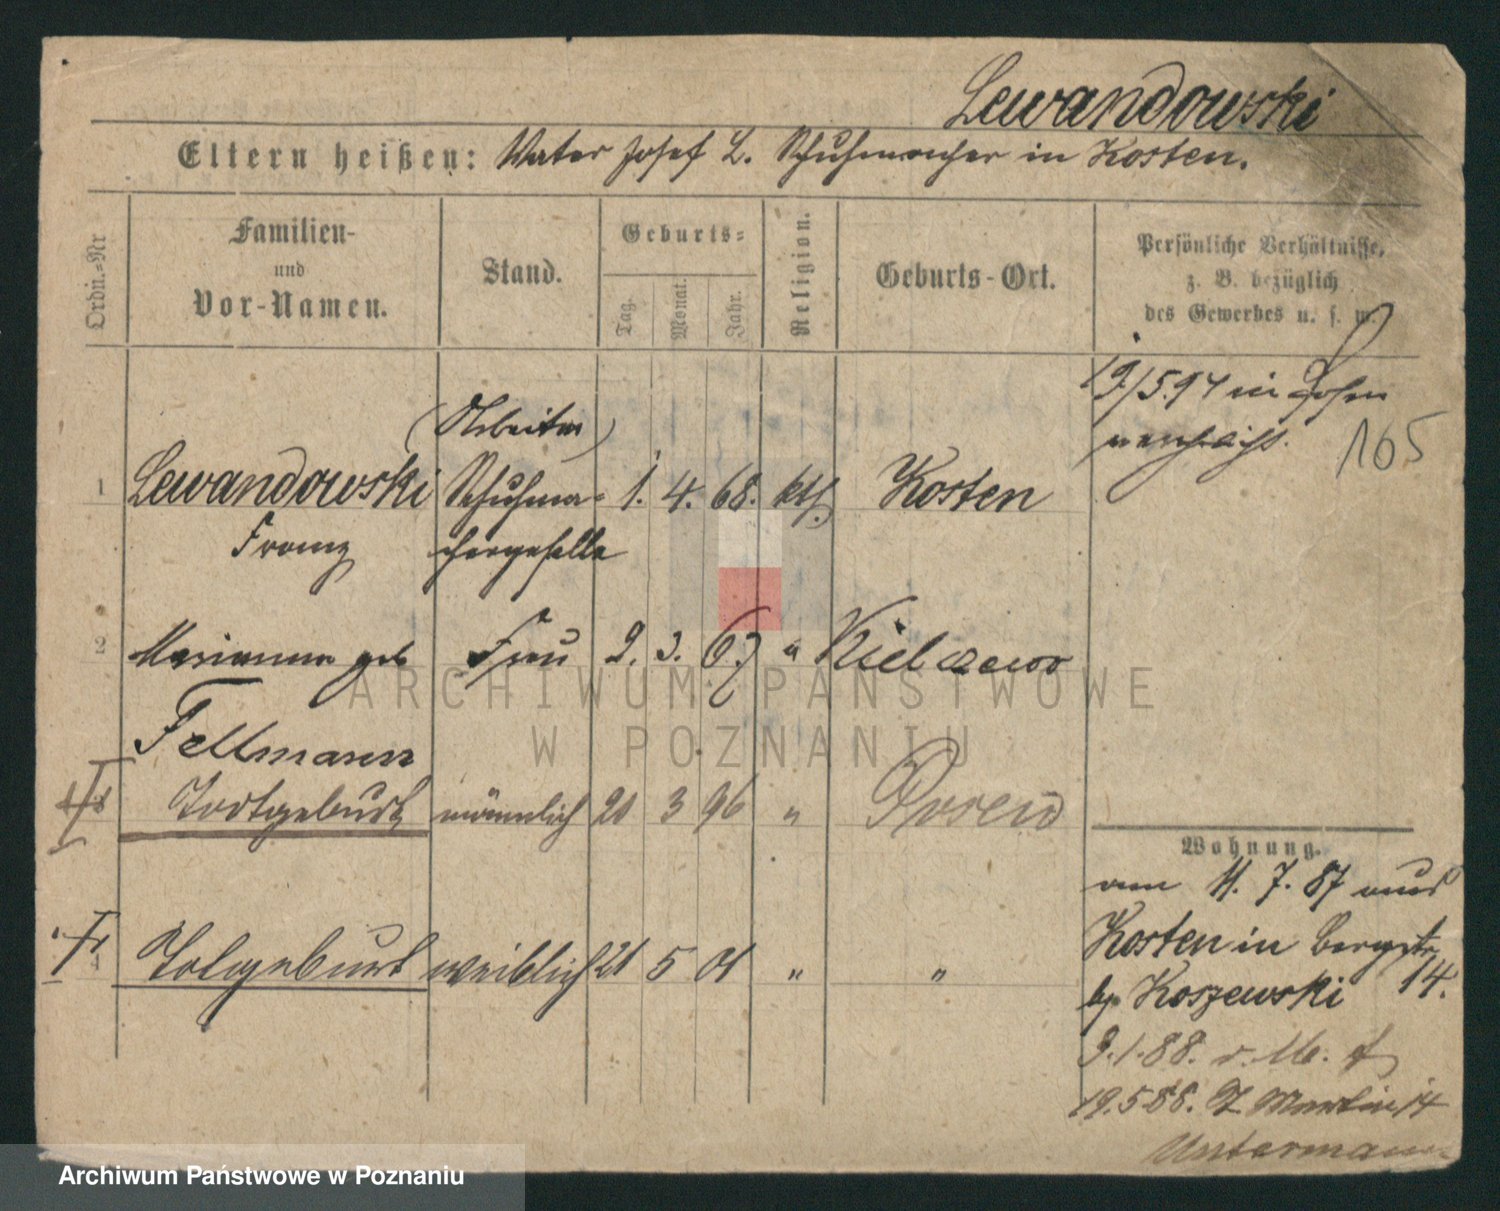 Lewandowski
Eltern heißen: Vater Josef L. Schuhmacher in Kosten.
Ordn.-Nr
Familien-
und
Vor-Namen.
Stand.
Geburts-
Tag.
Monat.
Jahr.
Religion.
Geburts-Ort.
Persönliche Verhältnisse,
z. B. bezüglich
des Gewerbes u. s. w.
19/5.94 in
165
(Arbeiter)
1 Lewandowski Schuhma- 1. 4. 68. kth. Kosten
Franz chergeselle
2 Marianna geb Frau 2. 3. 67 " Kielczewo
Fellmann
Todtgeburt männlich 21 3 96 " Posen
Wohnung.
am 11. 7. 87 aus
Kosten in Bergstr.
14.
4 Todtgeburt weiblich 21 5 01 " "
b/ Koszewski
9.1.88. v. M.
19.5.88. St Martin 14
Untermann
ARCHIWUM PAŃSTWOWE
W POZNANIU
Archiwum Państwowe w Poznaniu